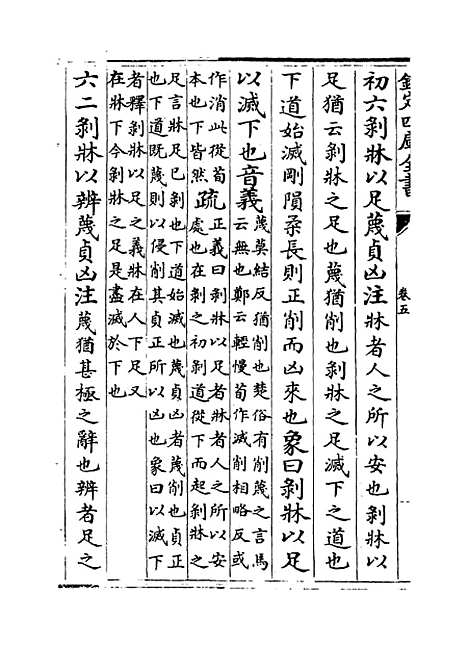 欽定四庫全書
卷五
初六剝牀以足蔑貞凶注牀者人之所以安也剝牀以
足猶云剝牀之足也蔑猶削也剝牀之足滅下之道也
下道始滅剛隕柔長則正削而凶來也象曰剝牀以足
以滅下也音義蔑莫結反猶削也楚俗有削蔑之言馬
云無也鄭云輕慢荀作滅削相略反或
作消此從荀
本也下皆然疏正義曰剝牀以足者牀者人之所以安
處也在剝之初剝道從下而起剝牀之
足言牀足已剝也下道始滅也蔑貞凶者蔑削也貞正
也下道既蔑則以侵削其貞正所以凶也象曰以滅下
者釋剝牀以足之義牀在人下足又
在牀下今剝牀之足是盡滅於下也
六二剝牀以辨蔑貞凶注蔑猶甚極之辭也辨者足之